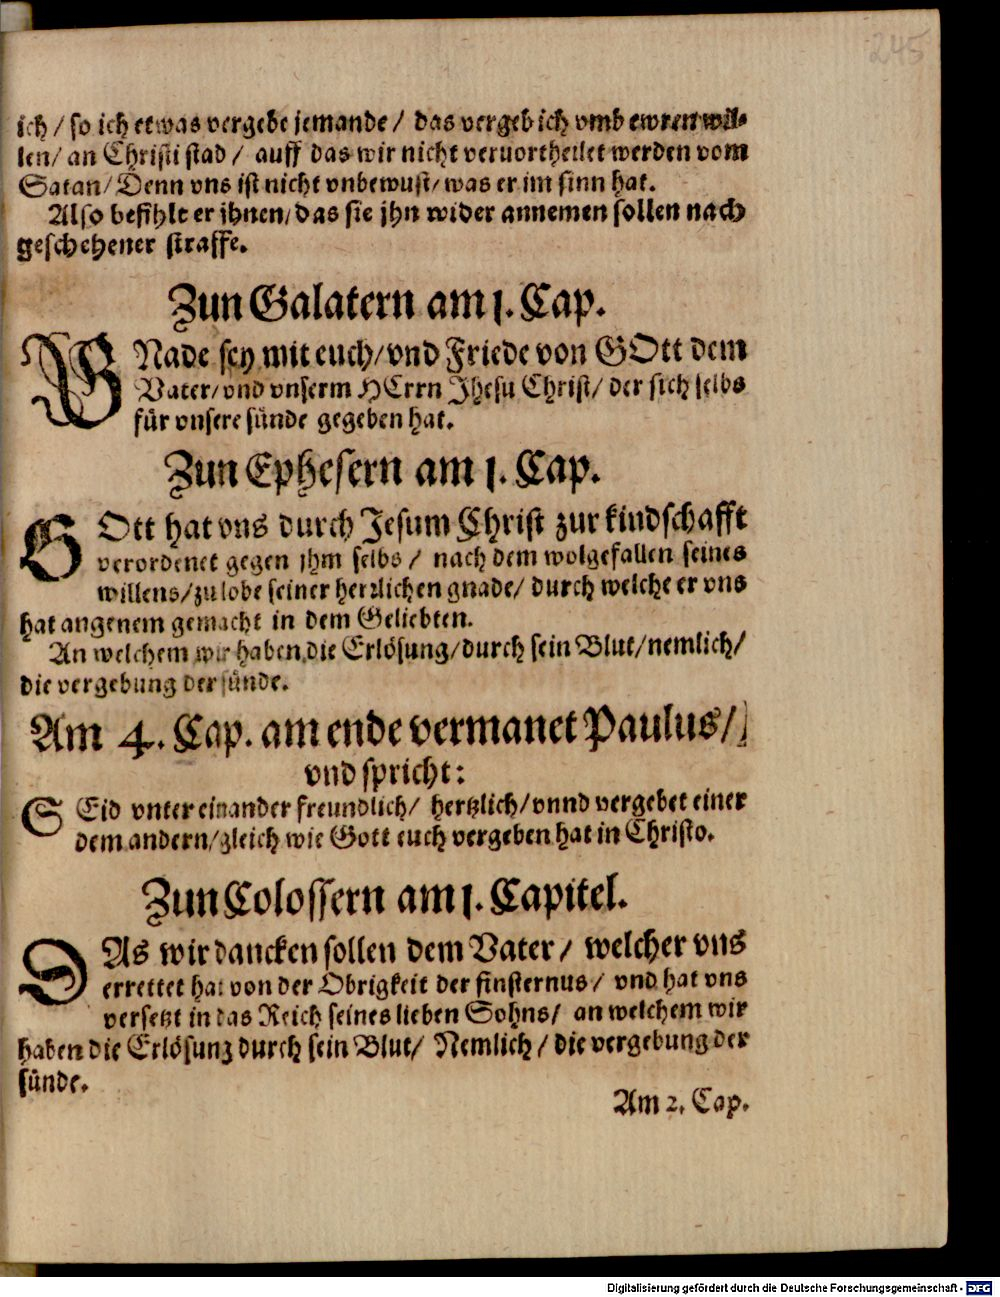 245
ich / so ich etwas vergebe jemande / das vergeb ich vmb ewren wil-
len / an Christi stad / auff das wir nicht veruortheilet werden vom
Satan / Denn vns ist nicht vnbewust / was er im sinn hat.
Also befihlt er ihnen / das sie jhn wider annemen sollen nach
geschehener straffe.
Zun Galatern am 1. Cap.
GNade sey mit euch / vnd Friede von GOtt dem
Vater / vnd vnserm HErrn Jhesu Christ / der sich selbs
für vnsere sünde gegeben hat.
Zun Ephesern am 1. Cap.
GOtt hat vns durch Jesum Christ zur kindschafft
verordenet gegen jhm selbs / nach dem wolgefallen seines
willens / zu lobe seiner herzlichen gnade / durch welche er vns
hat angenem gemacht in dem Geliebten.
An welchem wir haben die Erlösung / durch sein Blut / nemlich /
die vergebung der sünde.
Am 4. Cap. am ende vermanet Paulus /
vnd spricht:
SEid vnter einander freundlich / hertzlich / vnnd vergebet einer
dem andern / gleich wie Gott euch vergeben hat in Christo.
Zun Colossern am 1. Capitel.
DAs wir dancken sollen dem Vater / welcher vns
errettet hat von der Obrigkeit der finsternus / vnd hat vns
versetzt in das Reich seines lieben Sohns / an welchem wir
haben die Erlösung durch sein Blut / Nemlich / die vergebung der
sünde.
Am 2. Cap.
Digitalisierung gefördert durch die Deutsche Forschungsgemeinschaft - DFG